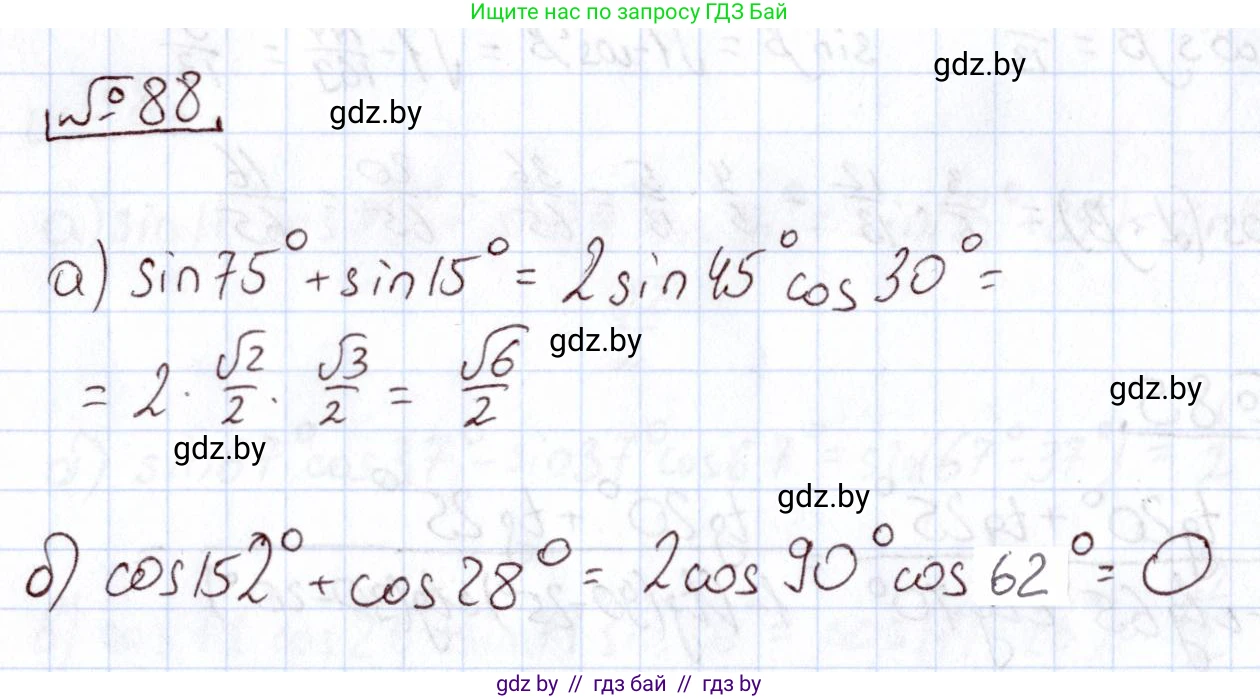 Ищите нас по запросу ГДЗ Бай
gdz.by
№ 88
gdz.by
а) sin75° + sin15° = 2 sin 45° cos 30° =
gdz.by
= 2 · √2/2 · √3/2 = √6/2
gdz.by
gdz.by
gdz.by
б) cos152° + cos28° = 2cos90° cos 62° = 0
gdz.by // гдз бай // гдз by